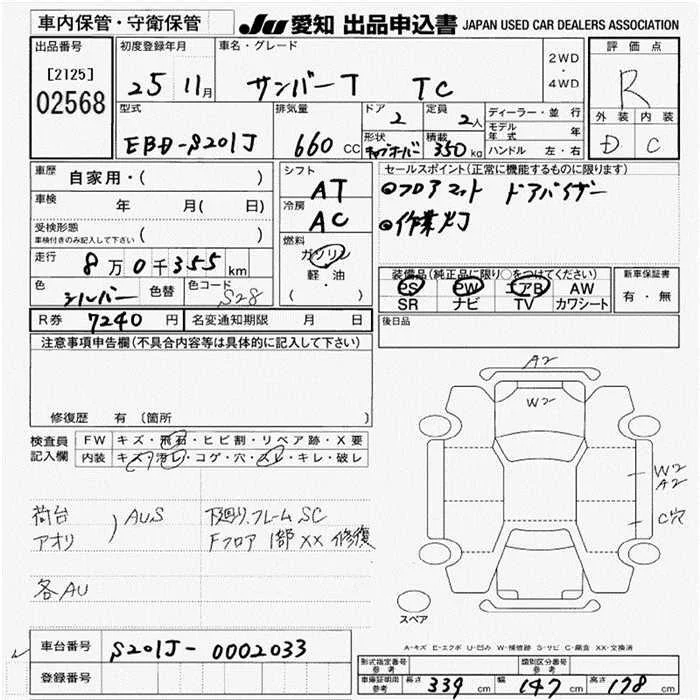 車内保管・守衛保管 JU 愛知 出品申込書 JAPAN USED CAR DEALERS ASSOCIATION
出品番号 [2125] 02568
初度登録年月 25 11月
車名・グレード サンバーT TC
2WD・4WD
評価点 R
外装 内装
D C
型式 EBD-S201J
排気量 660 CC
ドア 2
定員 2人
形状 キャブオーバー
積載 350 kg
ディーラー・並行
モデル年式 年
ハンドル 左・右
車歴 自家用・( )
車検 年 月( 日)
受検形態 車検付きのみ記入して下さい ( )
走行 8万0千355 km
色 シルバー 色替 色コード S28
シフト AT
冷房 AC
燃料 ガソリン
軽・油
( )
セールスポイント(正常に機能するものに限ります)
●フロアマット ドアバイザー
●作業灯
装備品(純正品に限り○をつけてください)
PS PW エアB AW
SR ナビ TV カワシート
新車保証書
有・無
R券 7240円 名変通知期限 月 日
後日品
注意事項申告欄(不具合内容等は具体的に記入して下さい)
修復歴 有 〔箇所 〕
検査員記入欄
FW キズ・飛石・ヒビ割・リペア跡・X要
内装 キズ・汚レ・コゲ・穴・スレ・キレ・破レ
荷台
アオリ ) AUS
下廻り、フレームSC
Fフロア 1部 XX 修復
各AU
A2
W2
W2
A2
C穴
スペア
A-キズ E-エクボ U-凹み W-補修跡 S-サビ C-腐食 XX-交換済
車台番号 S201J-0002033
登録番号
形式指定番号 参考
類別区分番号 参考
車庫証明用 参考 長さ 339 cm 幅 147 cm 高さ 178 cm